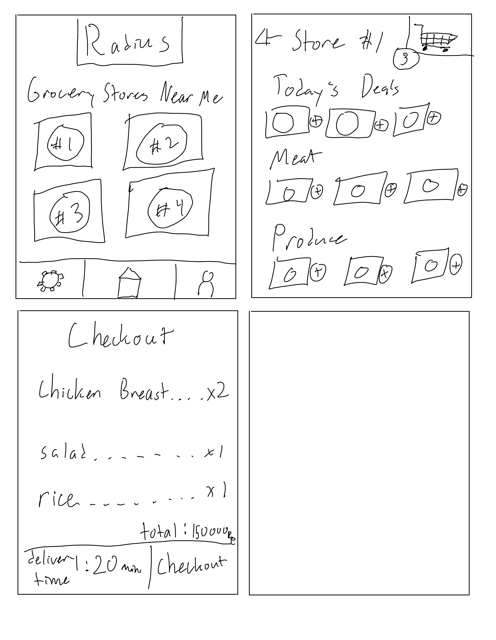 Radius
Grocery Stores Near Me
#1
#2
#3
#4
Store #1
3
Today's Deals
+ + +
Meat
+ + +
Produce
+ x +
Checkout
Chicken Breast....x2
salad.......x1
rice........x1
total:150000Rp
delivery time:20 min
Checkout